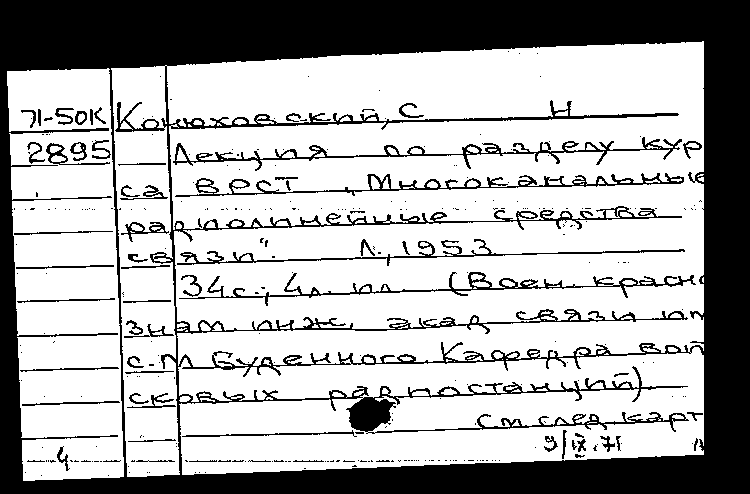 Л-50К Конюховский, С Н
2895 Лекция по разделу кур
са ВРСТ „Многоканальные
радиолинейные средства
связи“. Л., 1953
34с., 4л. ил. (Воен. красно
знам. инж. акад связи им
с.м Буденного. Кафедра вой
сковых радиостанций).
см. след карт
4 9/IX.71